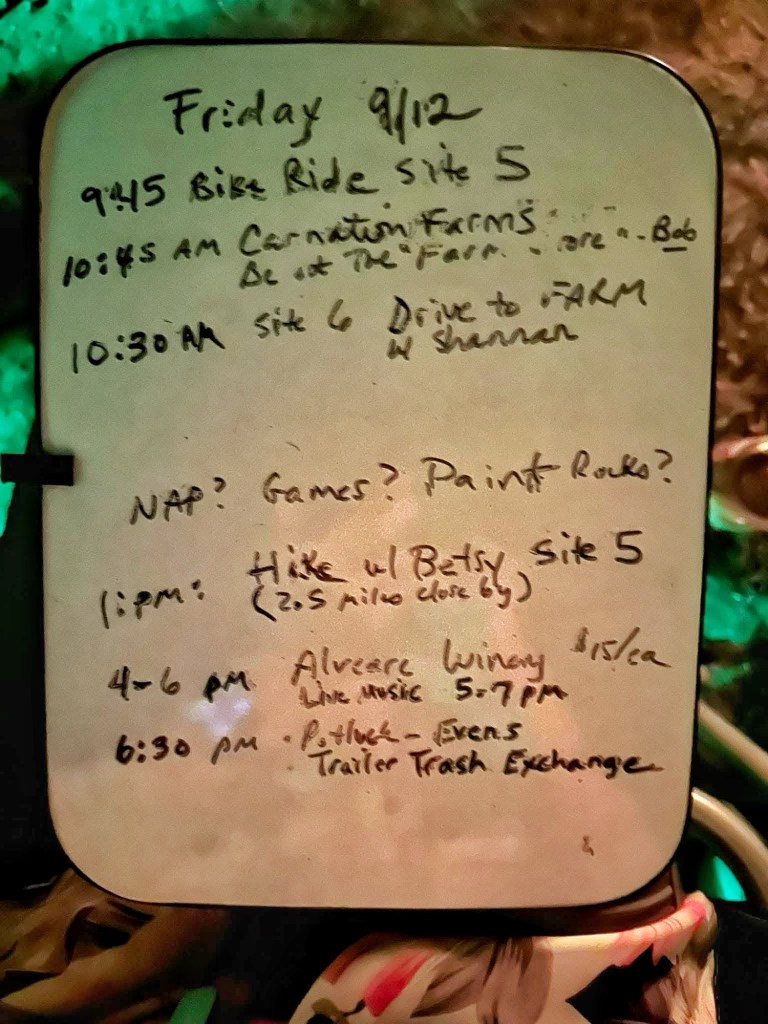 Friday 9/12
9:45 Bike Ride Site 5
10:45 AM Carnation Farms
Be at The "Farm ore" - Bob
10:30 AM Site 6 Drive to FARM
w Shannan
NAP? Games? Paint Rocks?
1:pm: Hike w/ Betsy Site 5
(2.5 miles close by)
4-6 pm Alveare Winery $15/ea
Live Music 5-7 pm
6:30 pm Potluck - Evens
Trailer Trash Exchange